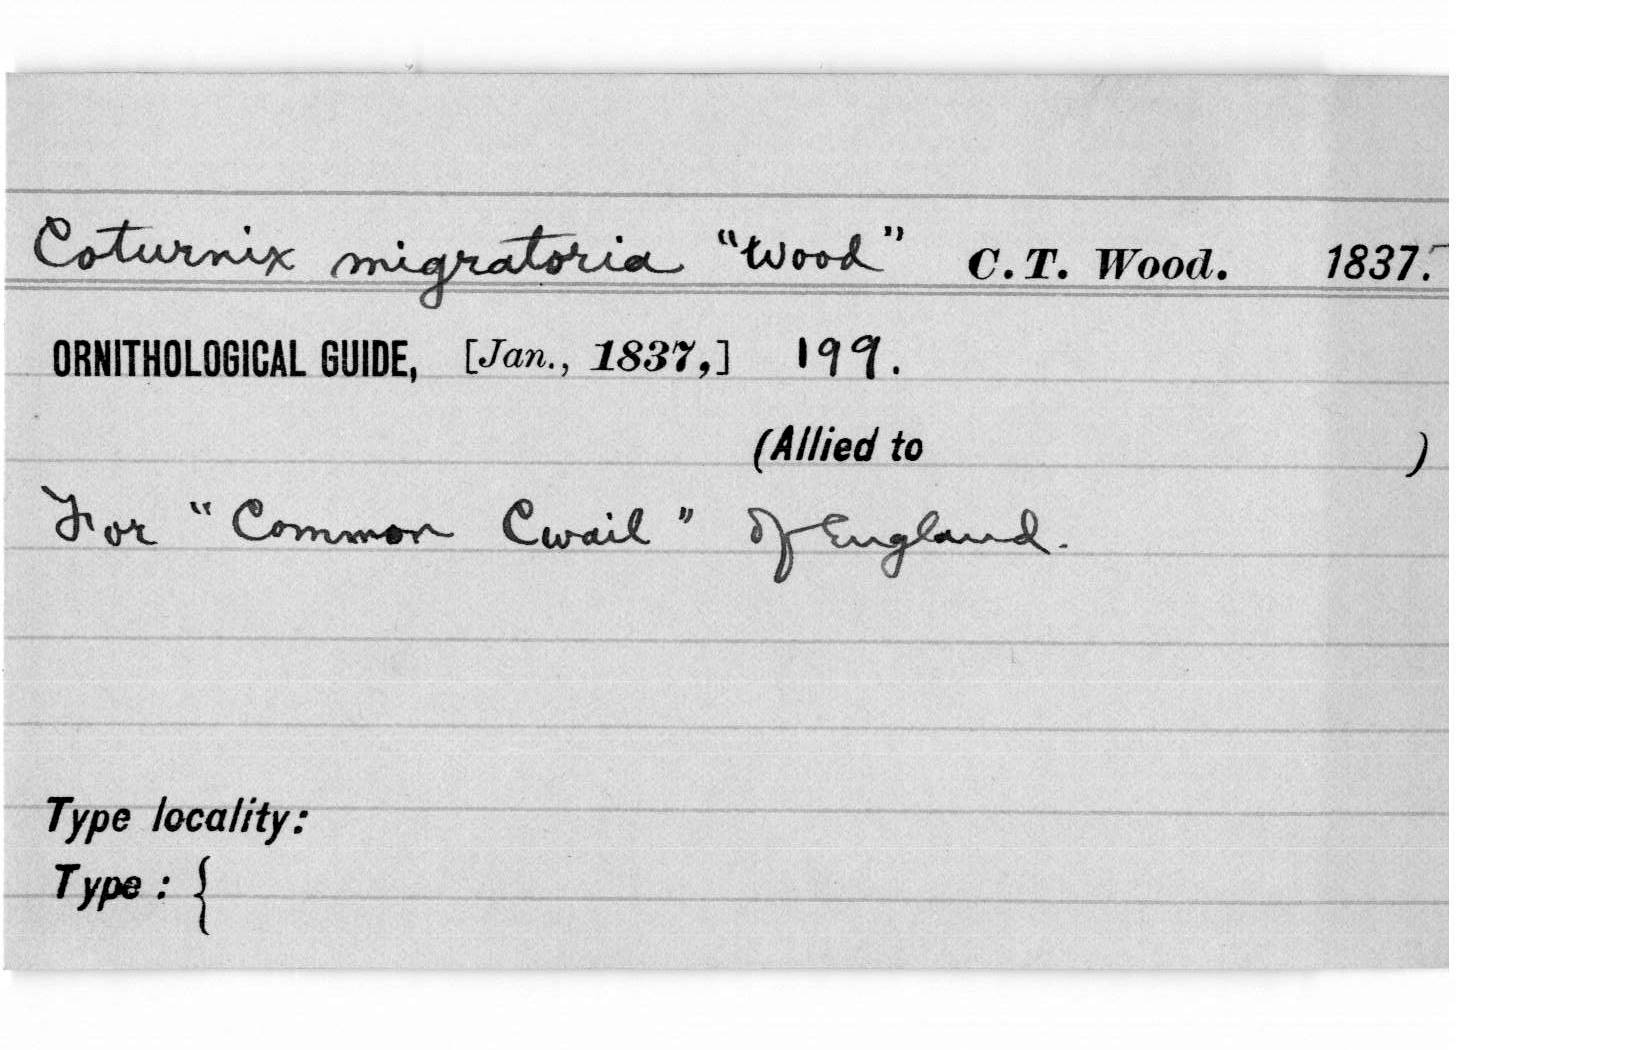 Coturnix migratoria "Wood" C. T. Wood. 1837.
ORNITHOLOGICAL GUIDE, [Jan., 1837,] 199.
(Allied to )
For "Common Cwail" of England.
Type locality:
Type : {